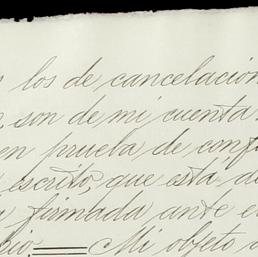 los de cancelación
son de mi cuenta.
en prueba de conf
escrito, que está de
firmada ante e
Mi objeto